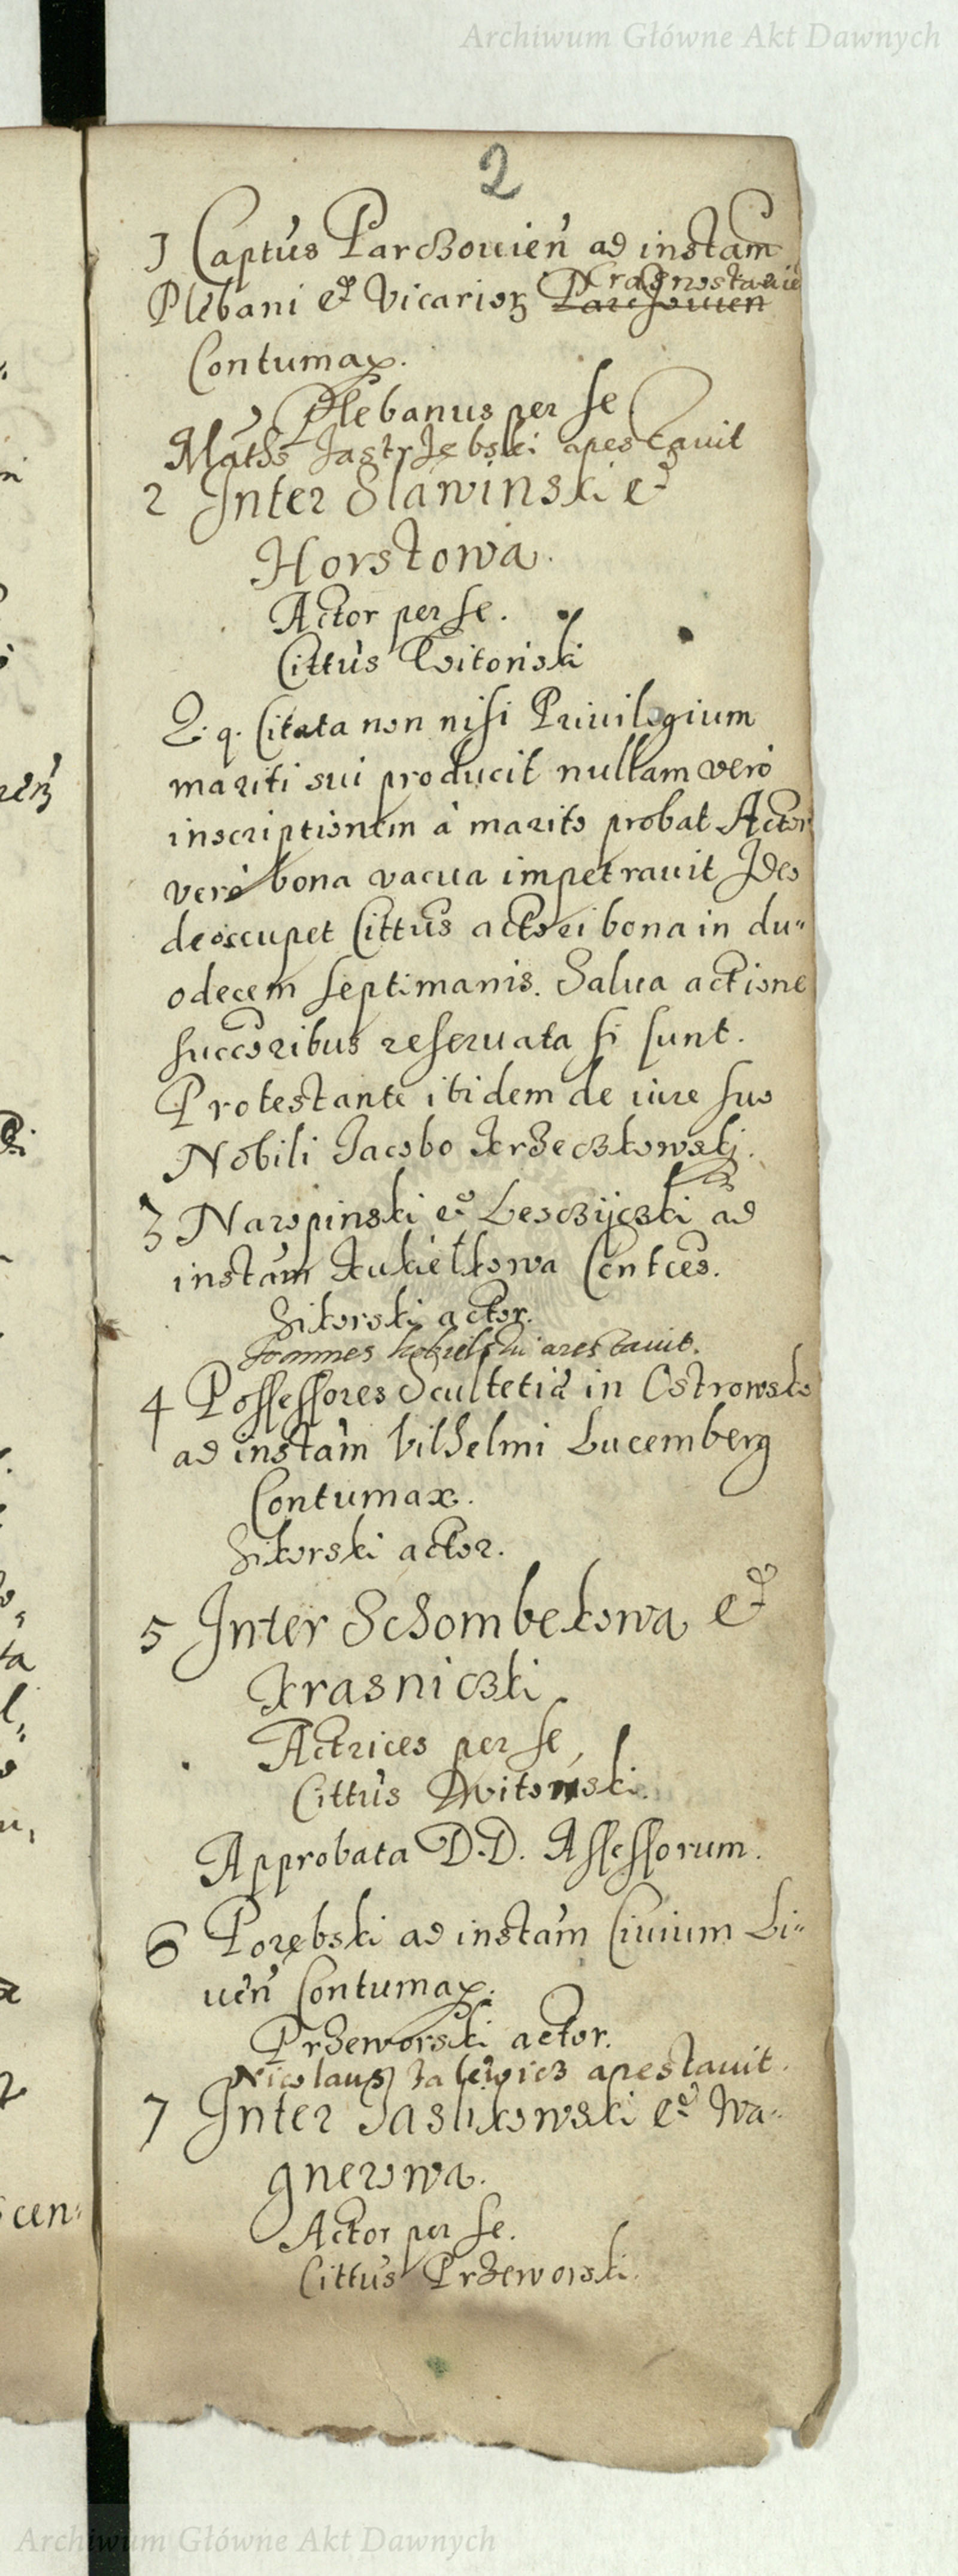 Archiwum Główne Akt Dawnych
2
1 Captús Parczouien ad instam
Plebani et Vicarior Parczouien
Contumax.
Plebanus per se
Maths Jastrzębski arestauit
2 Inter Slawinski et
Horstowa.
Actor per se.
Cittús Witoński
Q. q. Citata non nisi Priuilegium
mariti sui producit nullam vero
inscriptionem à marito probat Actor
verò bona vacua impetrauit Ideo
deoccupet Cittús actori bona in du"
odecem septimanis. Salua actione
succoribus reseruata si sunt.
Protestante ibidem de iure suo
Nobili Jacobo Krzeczkowski.
3 Naropinski et Lesczijczki ad
instam Kukiełkowa Contces.
Sikorski actor.
Joannes kobielski arestauit.
4 Possessores Scultetiæ in Ostrowsko
ad instam Vilhelmi Lucemberg
Contumax.
Sikorski actor.
5 Inter Schombekowa et
Krasniczki
Actrices per se
Cittús Witoński.
Approbata D.D. Assessorum.
6 Porębski ad instam Ciuium Li"
uen Contumax.
Przeworski actor.
Nicolaus arestauit.
7 Inter Jaslikowski et Wa"
gnerowa.
Actor per se.
Cittús Przeworski.
Archiwum Główne Akt Dawnych